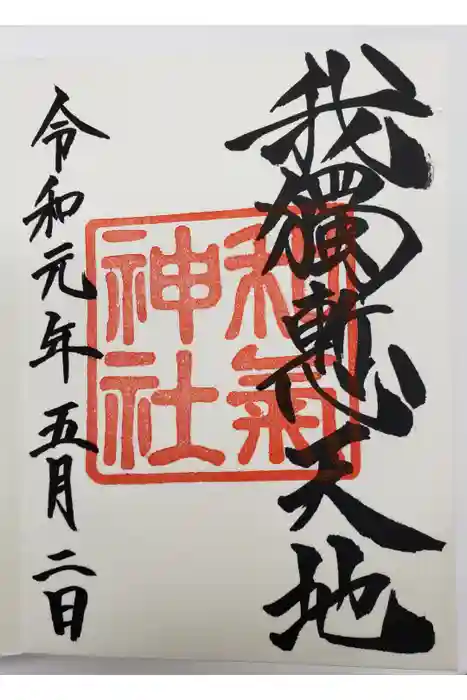 我獨慙天地
和氣神社
令和元年五月二日